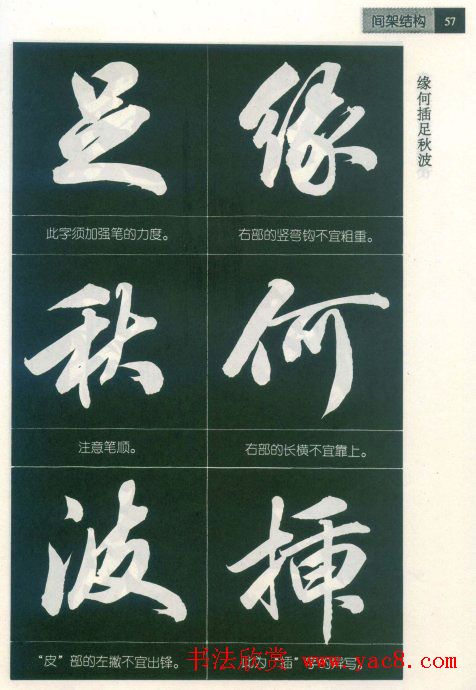 间架结构 57
缘何插足秋波
缘
右部的竖弯钩不宜粗重。
何
右部的长横不宜靠上。
插
此为“插”字的异写。
足
此字须加强笔的力度。
秋
注意笔顺。
波
“皮”部的左撇不宜出锋。
书法欣赏 www.yac8.com